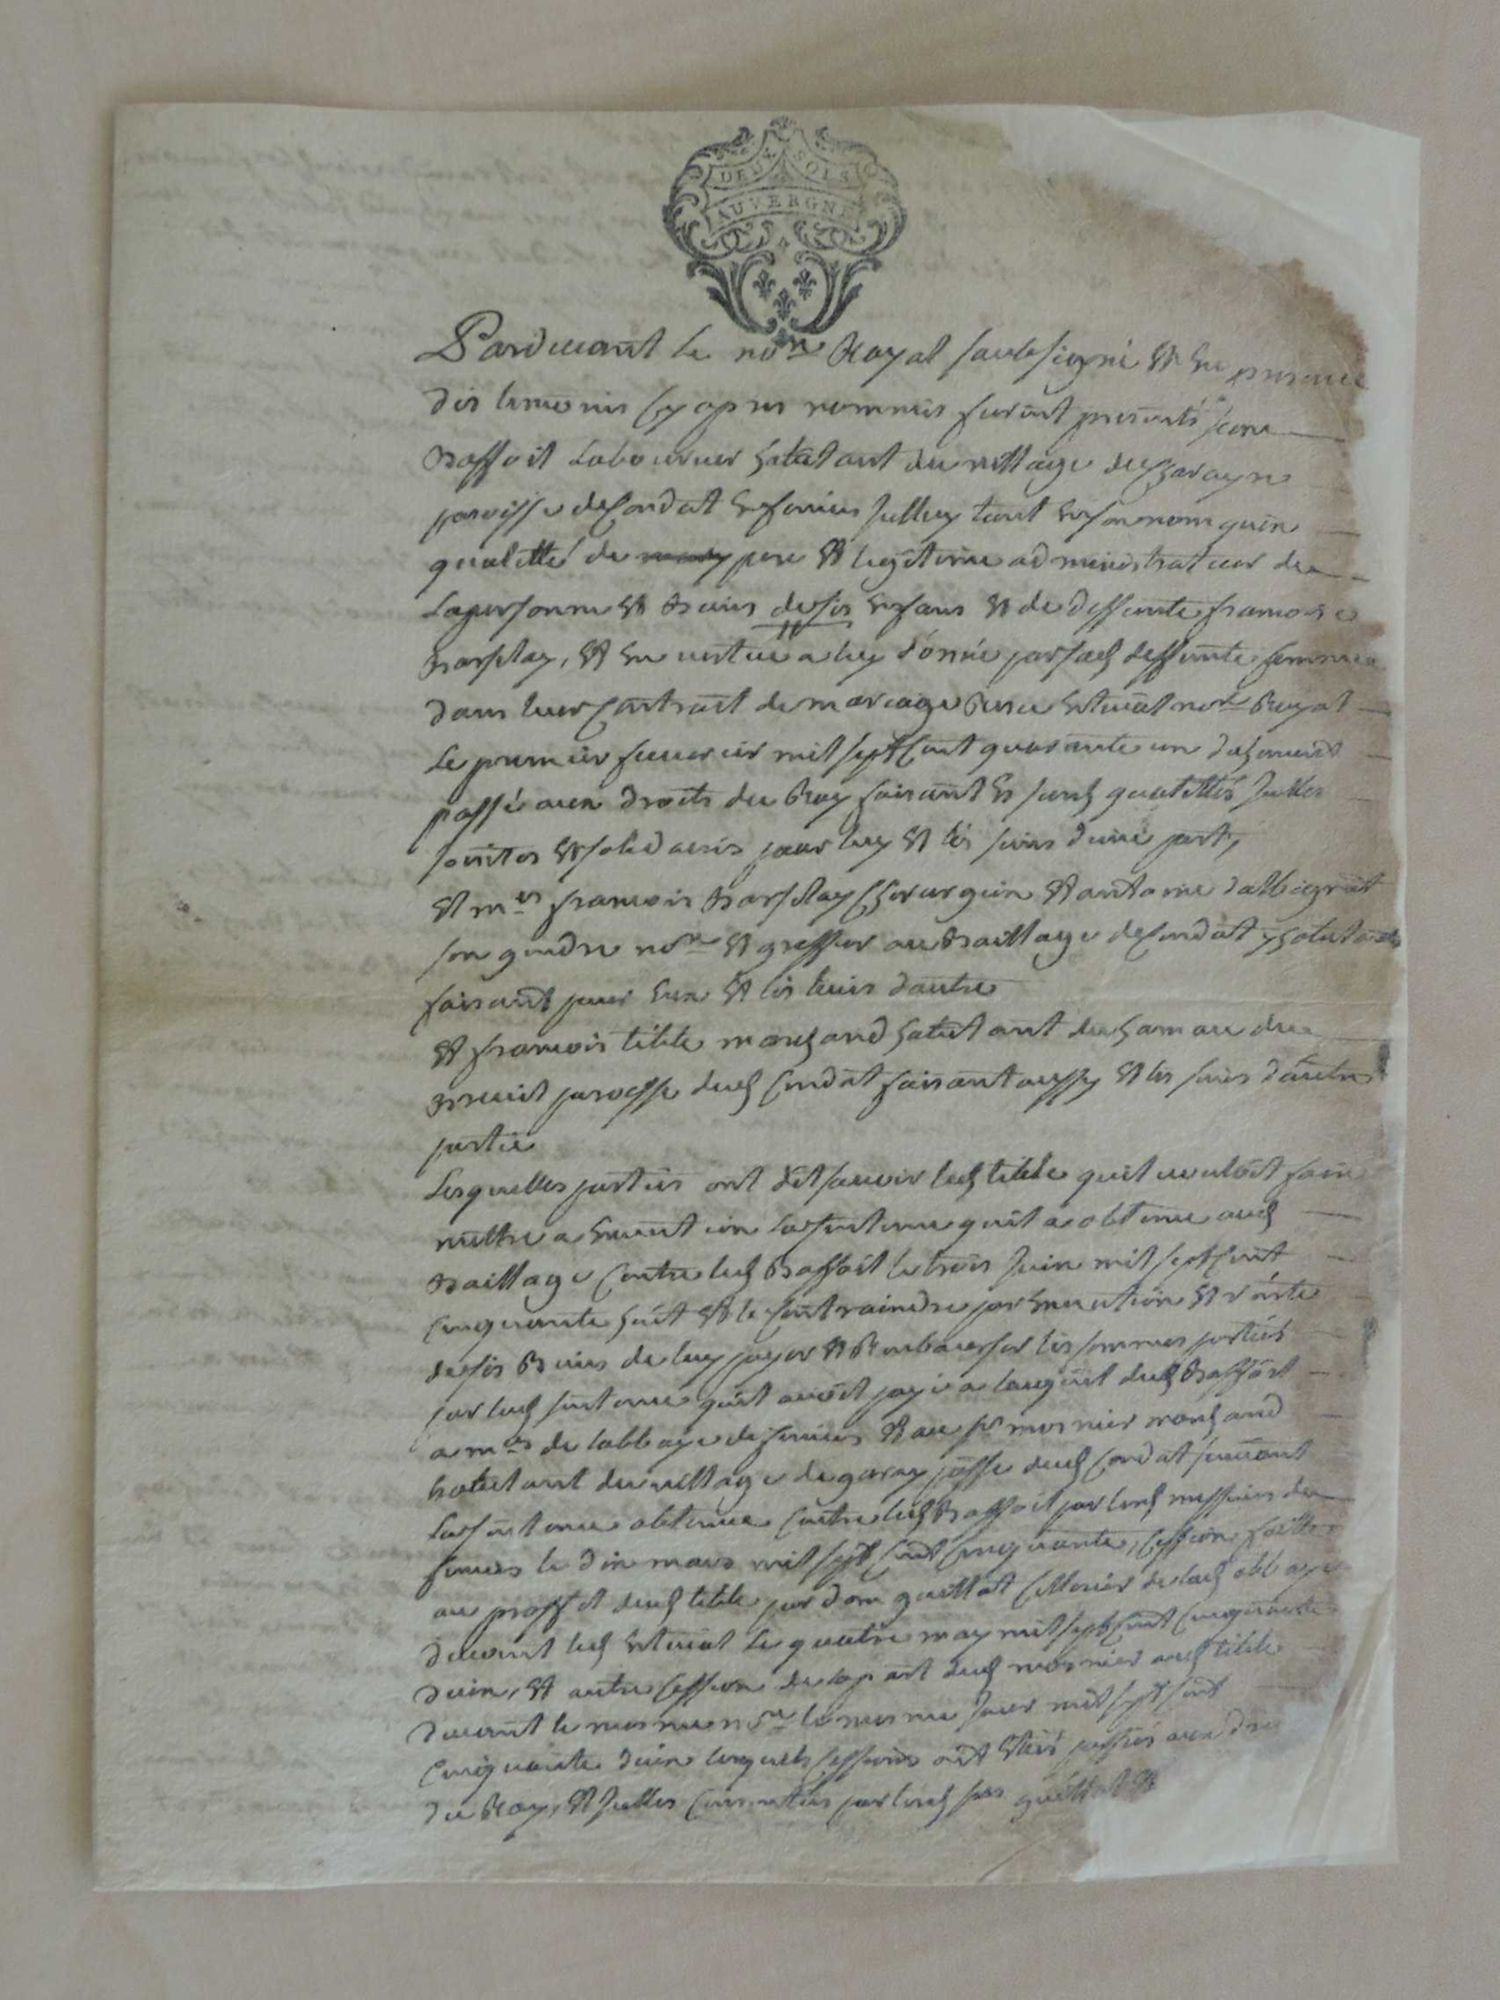 DEUX SOLS
AUVERGNE
Pardevant le no.re Royal soubsigné et en presance
des temoins cy apres nommés furent presents Jean
Baffoil laboureur habitant du village de
paroisse de Condat en feniers lequel tant en son nom quen
qualitté de pere et legitime administrateur de
la personne et biens de ses enfans et de deffunte francoise
et en vertue a luy donné par lad deffunte femme
dans leur Contrait de mariage Receu no.re Royal
le premier feuvrier mil sept Cent quarante un
passé aux droits du Roy faisant es susd qualittés
solidaires pour luy et les siens dune part,
et m.es francois Chirurgien et antoine dalbignat
son gendre no.re et greffier au Baillage de Condat y habitants
faisant pour eux et les leurs dautre
et francois tible marchand habitant du hamau du
paroisse dud Condat faisant aussy et les siens dautre
partie
Lesquelles parties ont dit scavoir led tible quil vouloit faire
mettre a execution la sentence quil a obtenue aud
Baillage Contre led Baffoil le trois Juin mil sept Cent
Cinquante huit et le Contraindre par execution et vante
de ses Biens de luy payer et Rembourser les sommes portées
par lad sentence quil avoit payé a lacquit dud Baffoil
a m.rs de labbaye de feniers et au s.r mosnier marchand
habitant du village de p.sse dud Condat suivant
la sentence obtenue Contre led Baffoil par lesd messieurs de
feniers le dix mars mil sept Cent Cinquante, Cession faitte
au proffit dud tible par dom guillot Cellerier de lad abbaye
devant led le quatre may mil sept Cent Cinquante
deux, et autre Cession de la part dud mosnier aud tible
devant le mesme no.re le mesme Jour mil sept Cent
Cinquante deux lesquels Cessions ont estés passés aux droits
du Roy, et par lesd s.rs guillot et